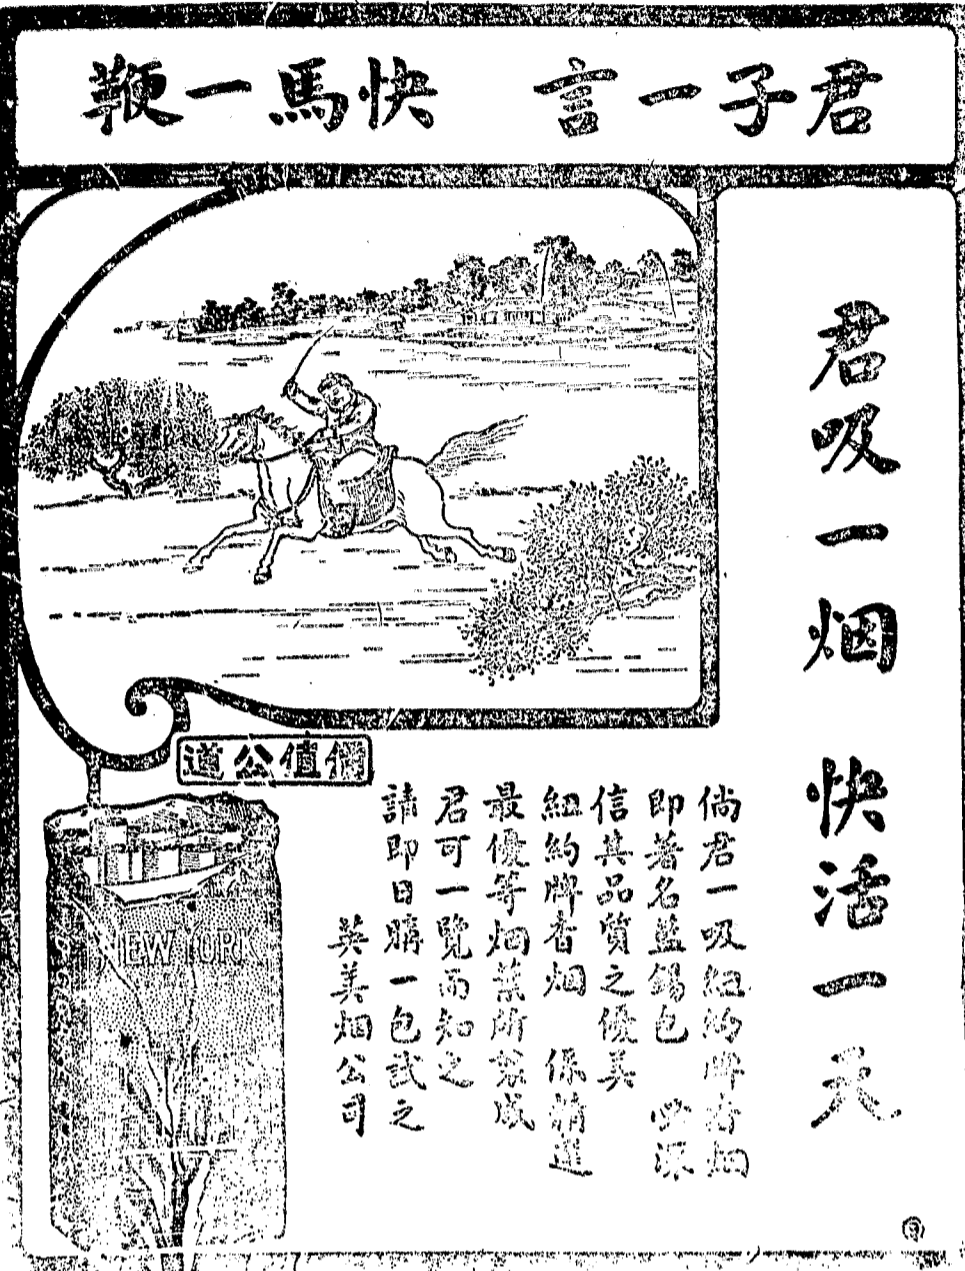 君子一言　快馬一鞭
君吸一烟　快活一天
倘君一吸紐約牌香烟
即著名藍錫包　必深
信其品質之優美
紐約牌香烟　係精選
最優等烟葉所製成
君可一覽而知之
請即日購一包試之
英美烟公司
價值公道
NEW YORK